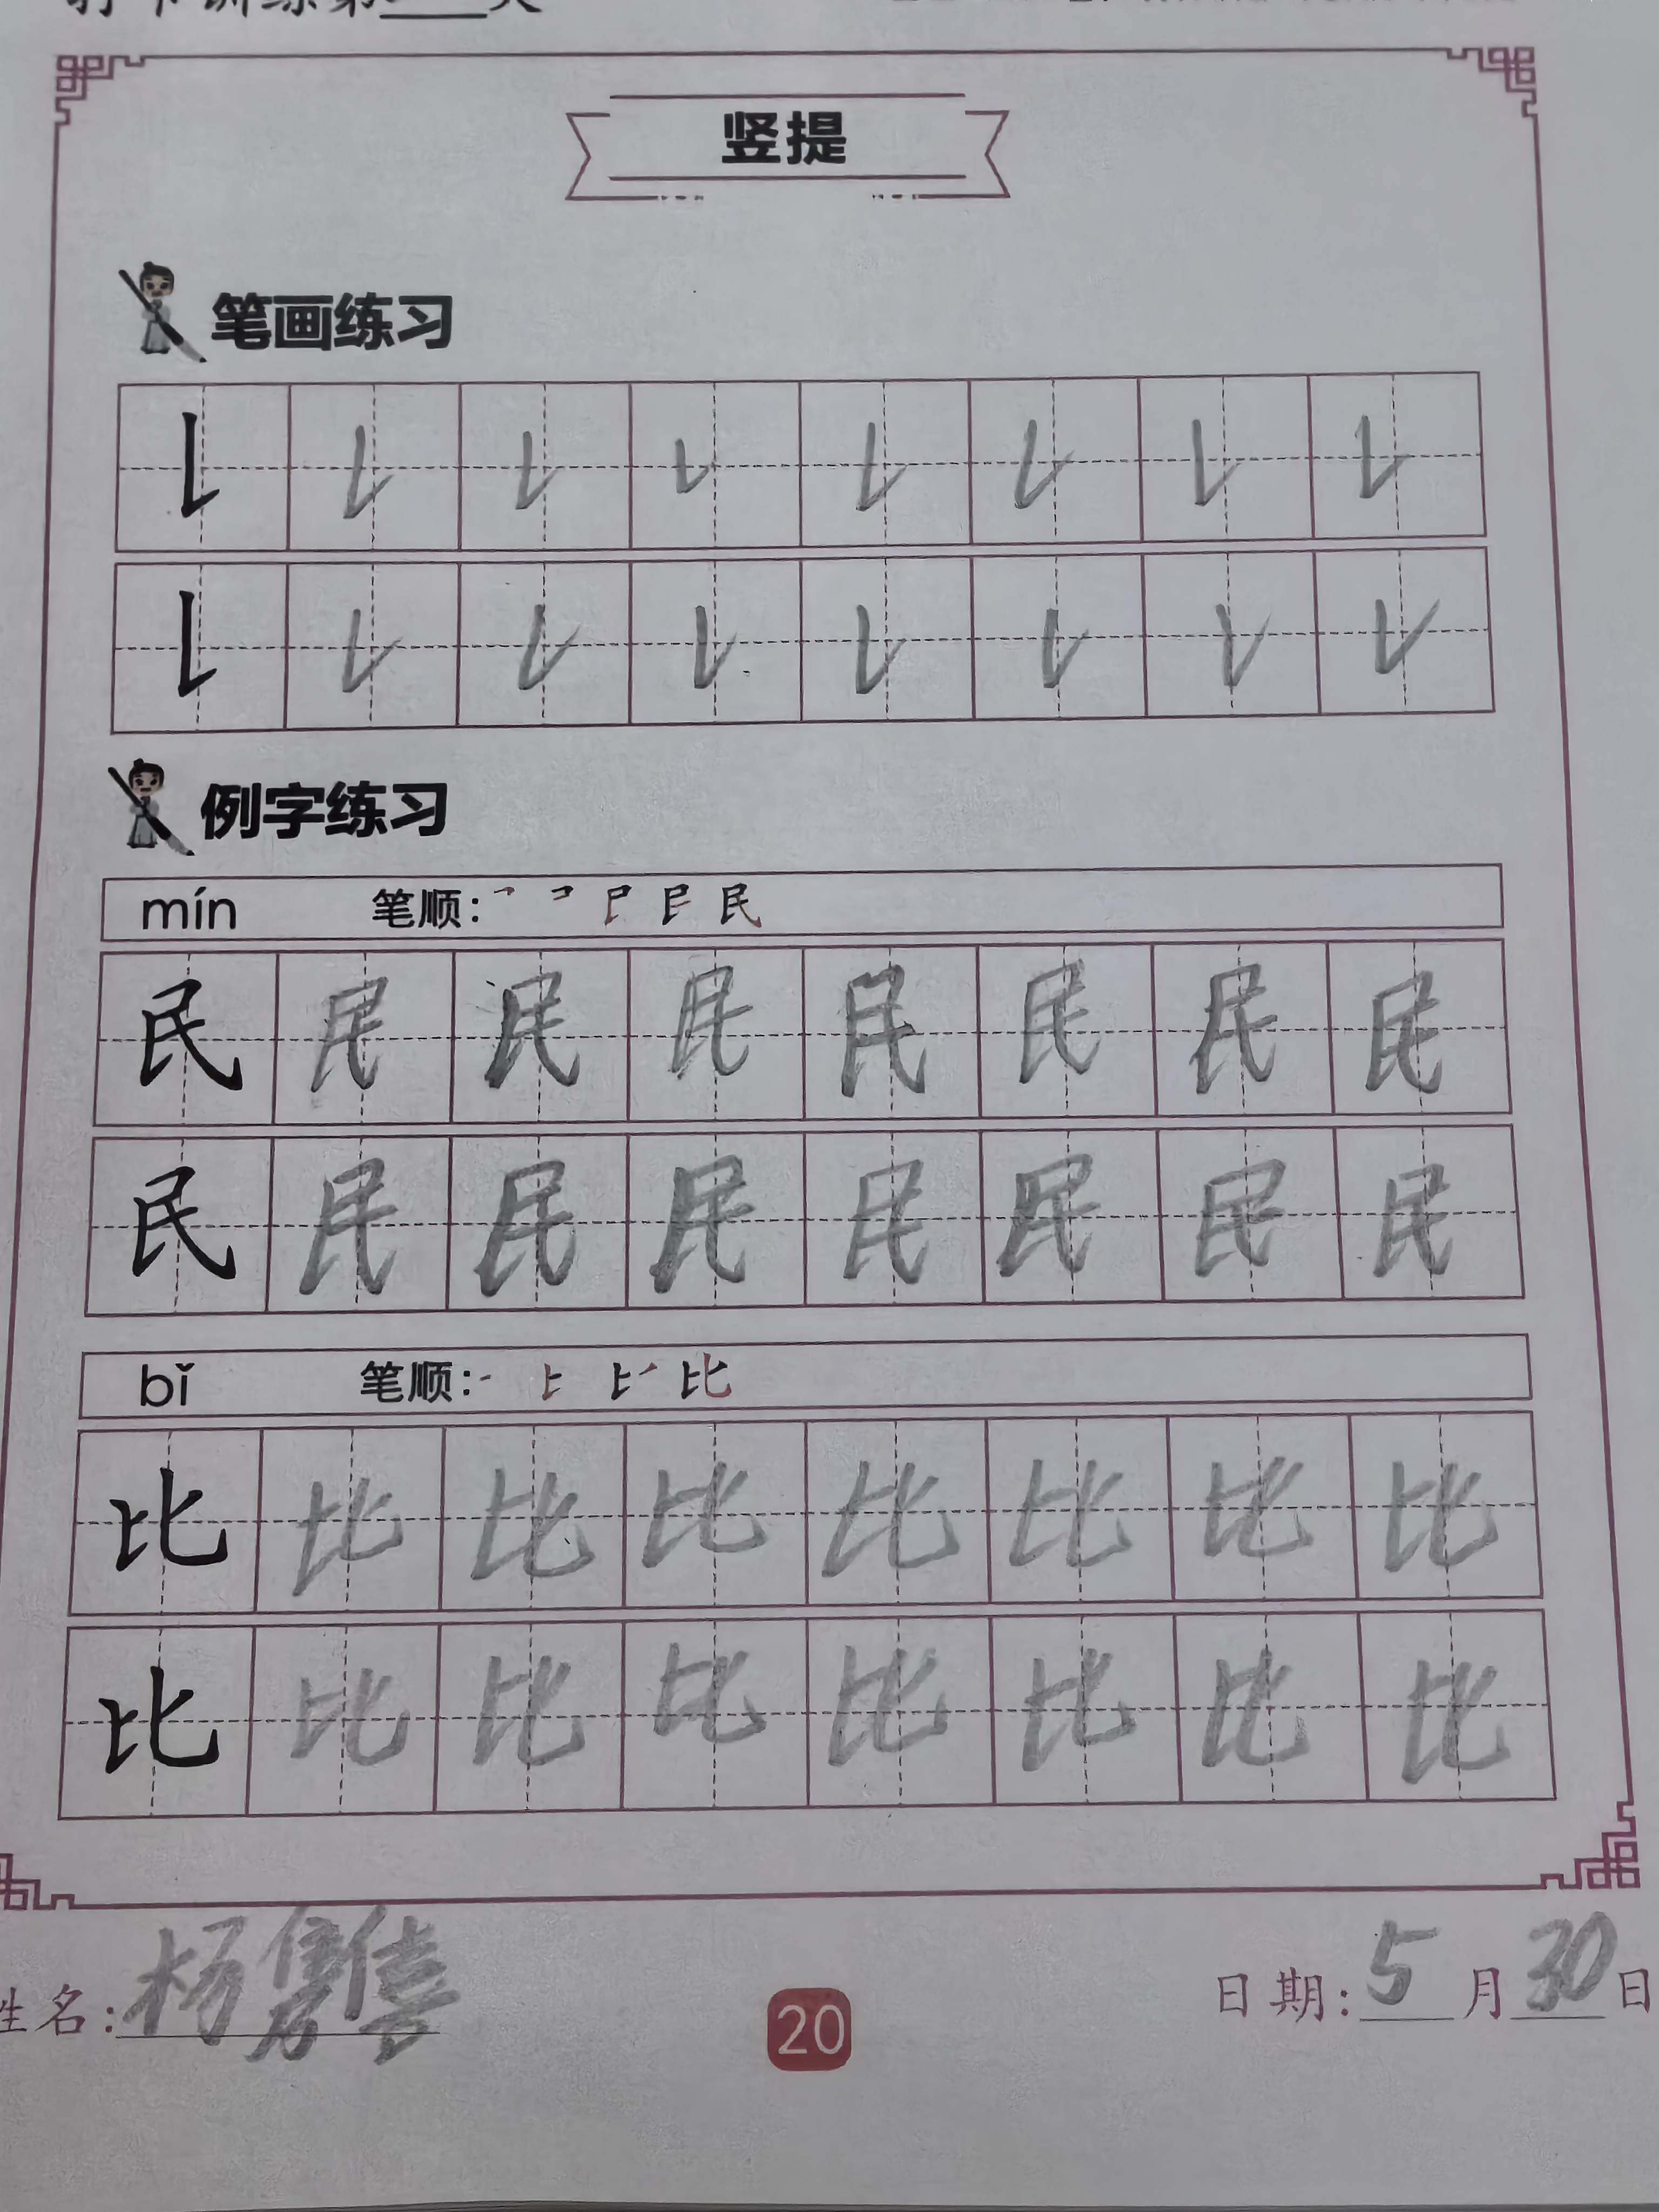 打卡训练第___天
竖提
笔画练习
例字练习
mín 笔顺: 民
民 民 民 民 民 民 民 民
民 民 民 民 民 民 民 民
bǐ 笔顺: 比
比 比 比 比 比 比 比 比
比 比 比 比 比 比 比 比
姓名: 杨
20
日期: 5月30日